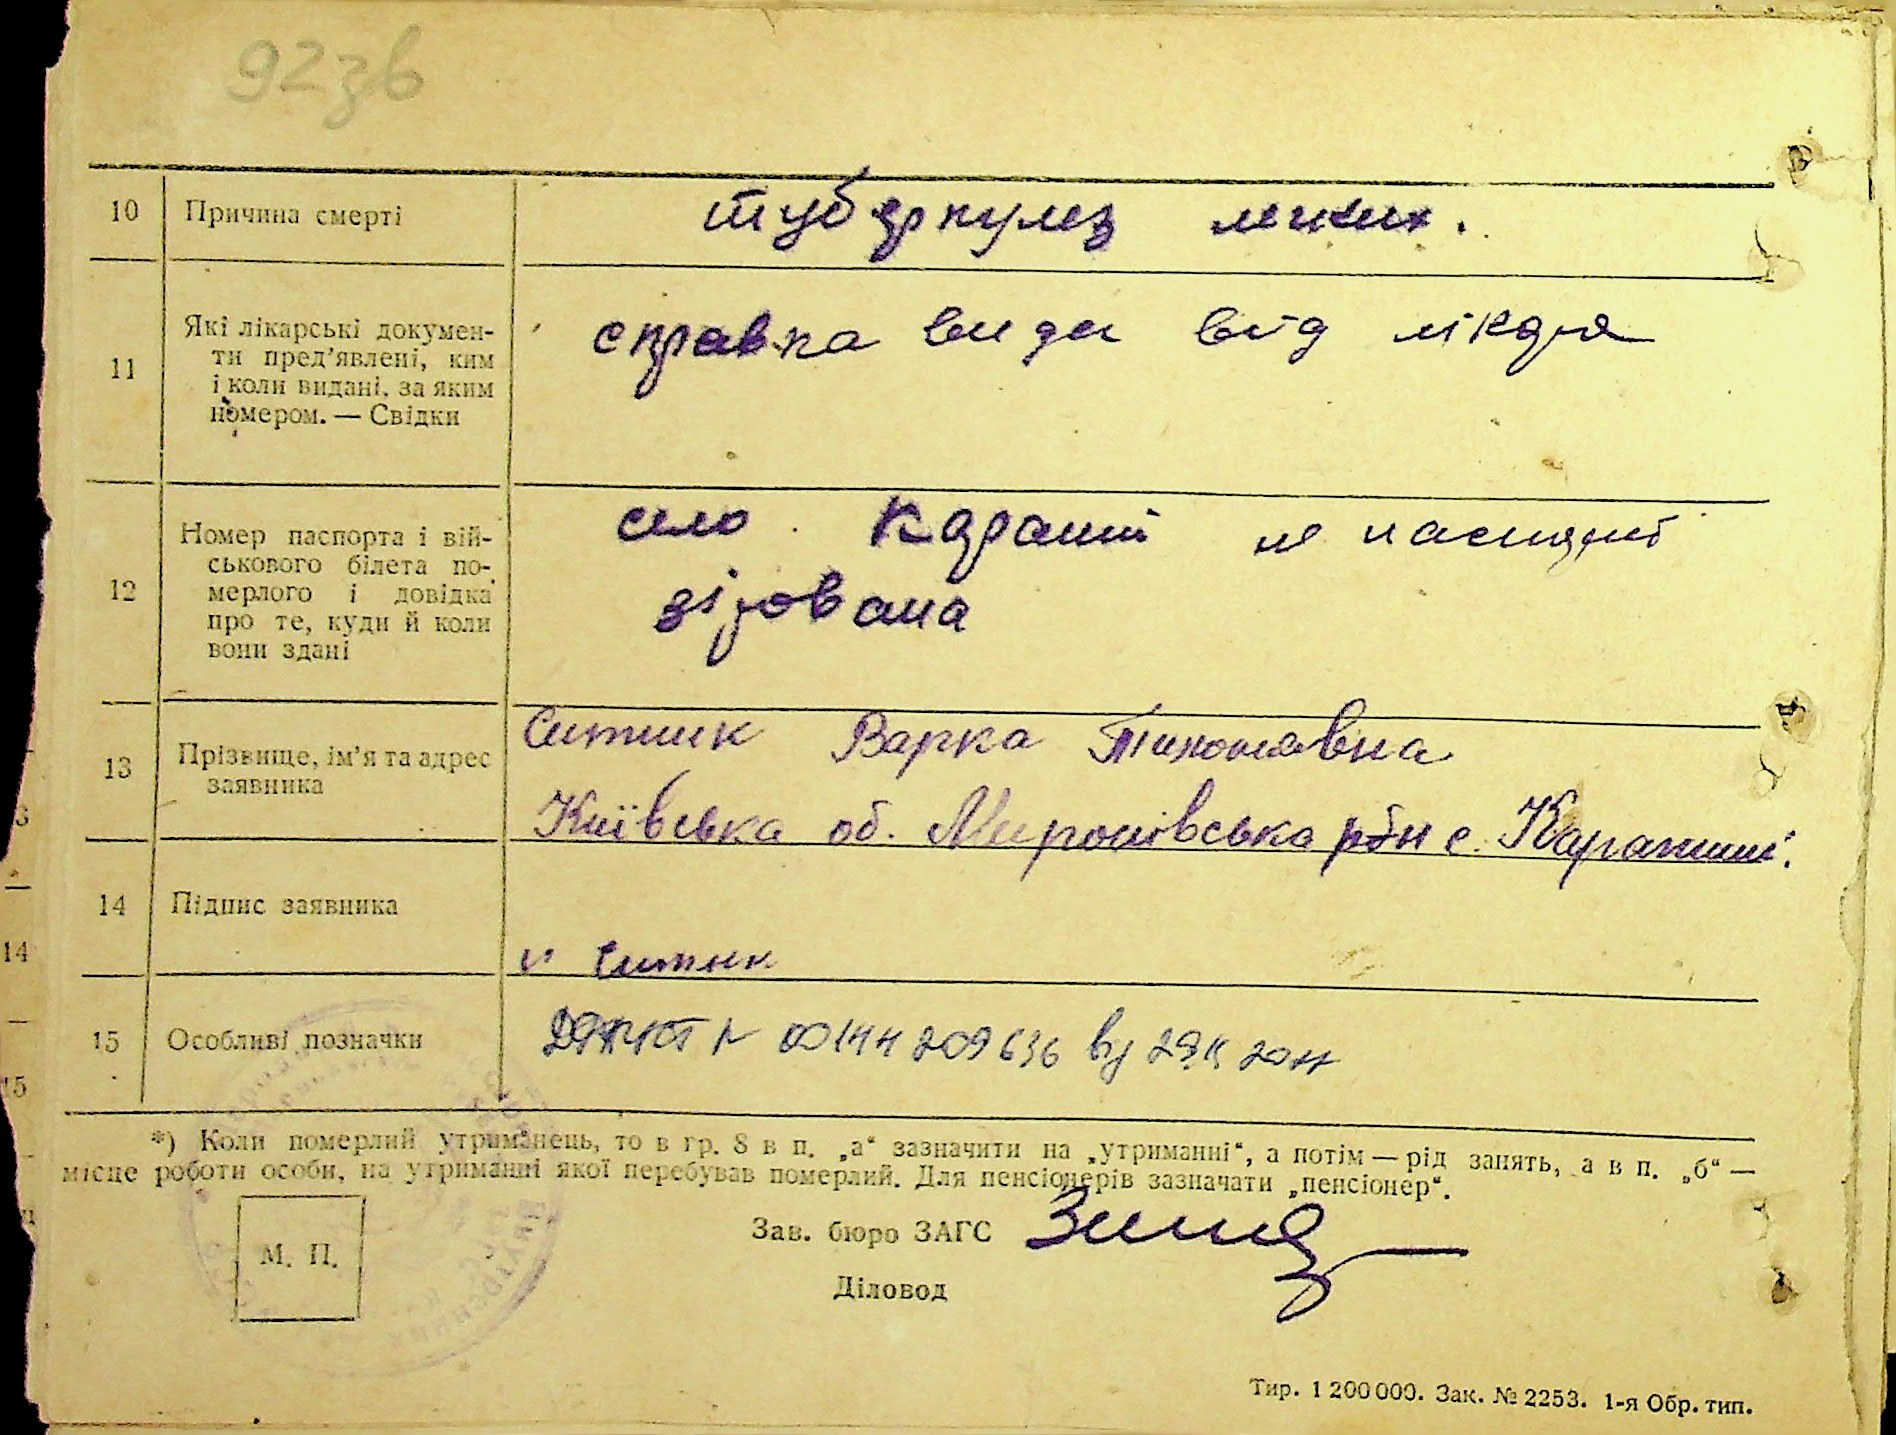 92зв
10 Причина смерті туберкулез легких.
11 Які лікарські докумен-
ти пред'явлені, ким
і коли видані, за яким
номером. — Свідки
справка вида від лікаря
12 Номер паспорта і вій-
ськового білета по-
мерлого і довідка
про те, куди й коли
вони здані
село Карапиші не паспорті
зірована
13 Прізвище, ім'я та адрес
заявника
Ситник Варка Тихонавна
Київська об. Миронівська рйн с. Карапиші.
14 Підпис заявника
Ситник
15 Особливі позначки
00144209636 від
*) Коли померлий утриманець, то в гр. 8 в п. „а“ зазначити на „утриманні“, а потім — рід занять, а в п. „б“ —
місце роботи особи, на утриманні якої перебував померлий. Для пенсіонерів зазначати „пенсіонер“.
М. П.
Зав. бюро ЗАГС
Діловод
Тир. 1 200 000. Зак. № 2253. 1-я Обр. тип.
14